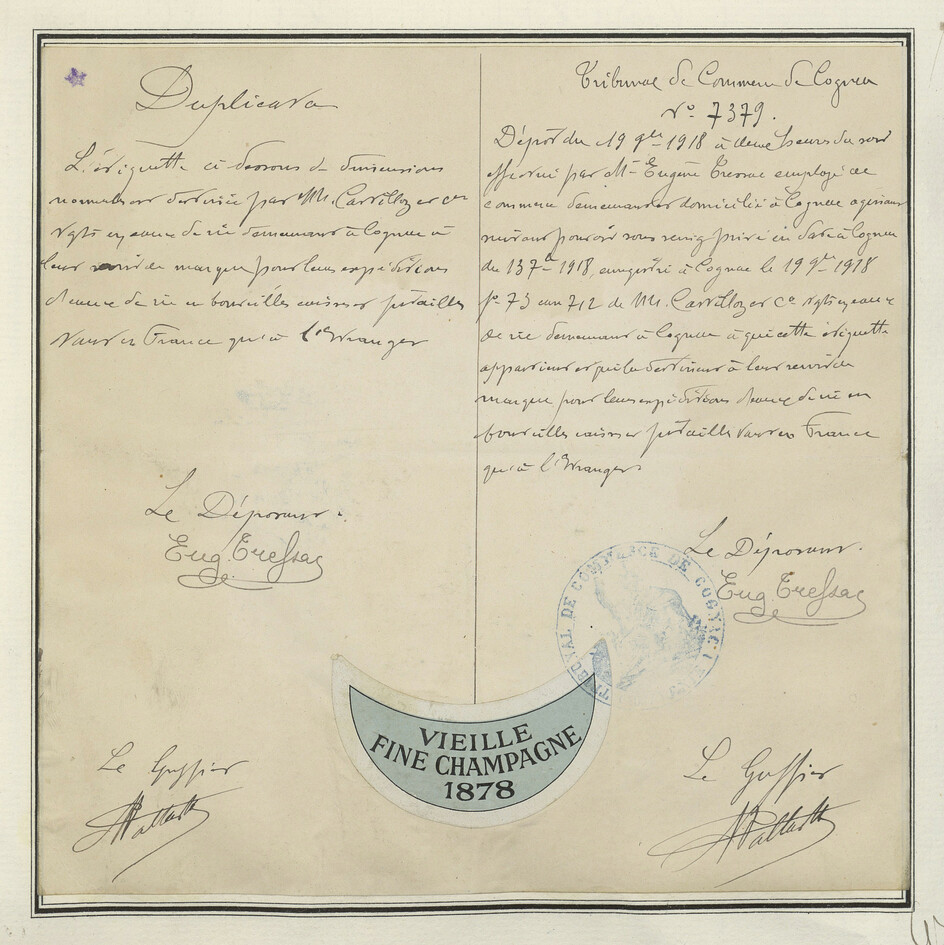 Duplicata
L'étiquette ci-dessous de dimensions
normales est destinée par MM. Castillon et Cie
Ngts en eaux de vie demeurant à Cognac à
leur servir de marque pour leurs expéditions
d'eaux de vie en bouteilles caisses et futailles
tant en France qu'à l'Etranger
Le Déposant.
Eug. Tressac
Le Greffier
Tribunal de Commerce de Cognac
No 7379.
Dépôt du 19 9bre 1918 à deux heures du soir
effectué par Mr Eugène Tressac employé de
commerce demeurant et domicilié à Cognac agissant
suivant pouvoir sous seing privé en date à Cognac
du 13 1918, enregistré à Cognac le 19 9bre 1918
fo 73 case 712 de MM. Castillon et Co Ngts en eaux
de vie demeurant à Cognac à qui cette étiquette
appartient et qui la destinent à leur servir de
marque pour leurs expéditions d'eaux de vie en
bouteilles caisses et futailles tant en France
qu'à l'Etranger
Le Déposant.
Eug Tressac
TRIBUNAL DE COMMERCE DE COGNAC
Le Greffier
VIEILLE
FINE CHAMPAGNE
1878